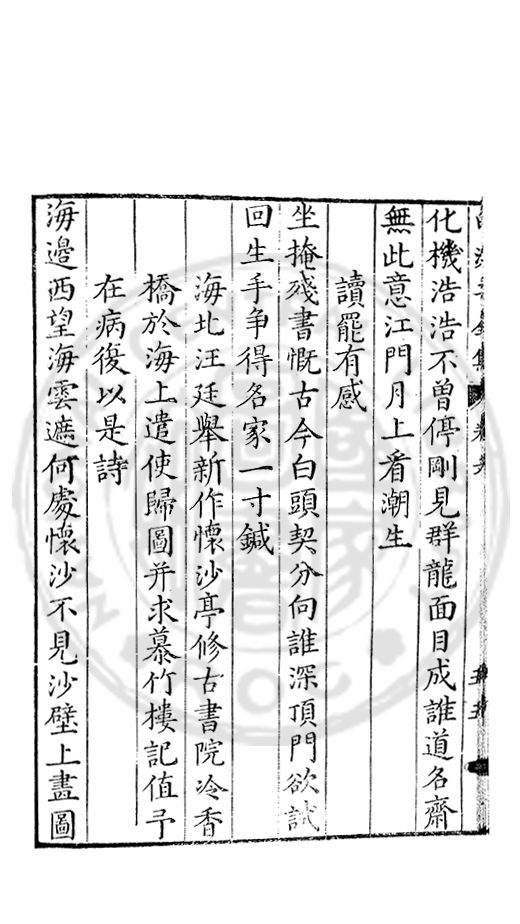 化機浩浩不曾停剛見群龍面目成誰道名齋
無此意江門月上看潮生
讀罷有感
坐掩殘書慨古今白頭契分向誰深頂門欲試
回生手争得名家一寸鍼
海北汪廷舉新作懷沙亭修古書院冷香
橋於海上遣使歸圖并求慕竹樓記值予
在病復以是詩
海邊西望海雲遮何處懷沙不見沙壁上畫圖